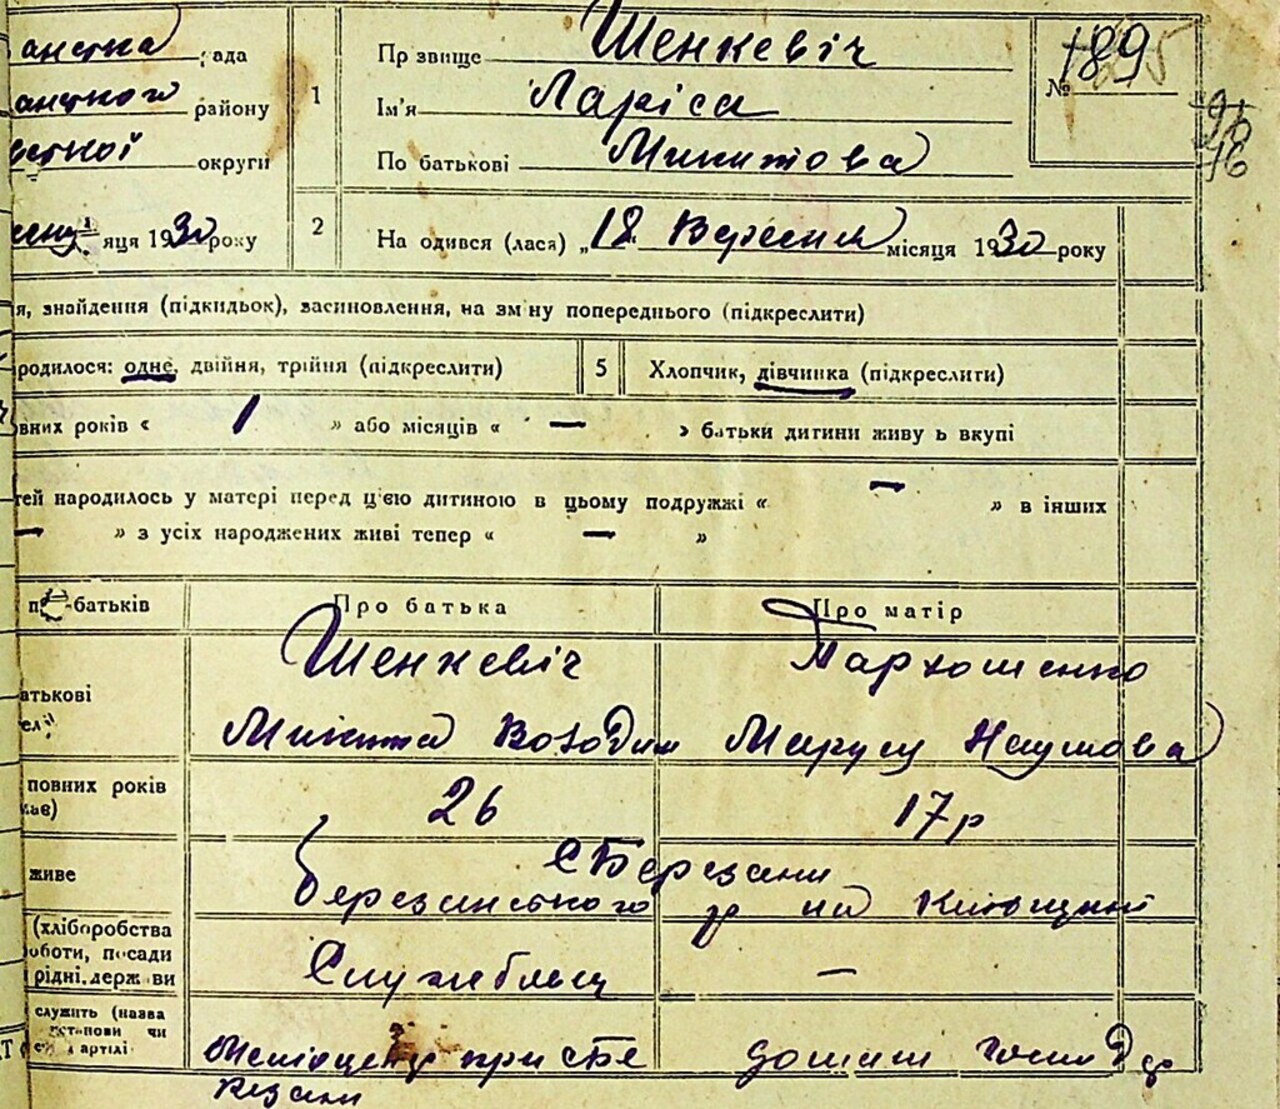 рада
району
округи
1
Прізвище Шенкевіч
Ім'я Ларіса
По батькові Микитова
№ 189
96
16
яця 1930 року
2
Народився (лася) „18 Вересня місяця 1930 року
я, знайдення (підкидьок), васиновлення, на зміну попереднього (підкреслити)
родилося: одне, двійня, трійня (підкреслити)
5
Хлопчик, дівчинка (підкреслити)
овних років « 1 » або місяців « — » батьки дитини живуть вкупі
тей народилось у матері перед цією дитиною в цьому подружжі « — » в інших
— » з усіх народжених живі тепер « — »
батьків
Про батька
Про матір
атькові
Шенкевіч
Пархоменко
Микита Володим
Маруся Наумова
повних років
26
17 р
живе
с Березани
Березанського р на Київщині
(хліборобства
оботи, посади
рідні, держ ви
Службовец
—
служить (назва
установи чи
артілі
при с Бе
резани
домаш господ